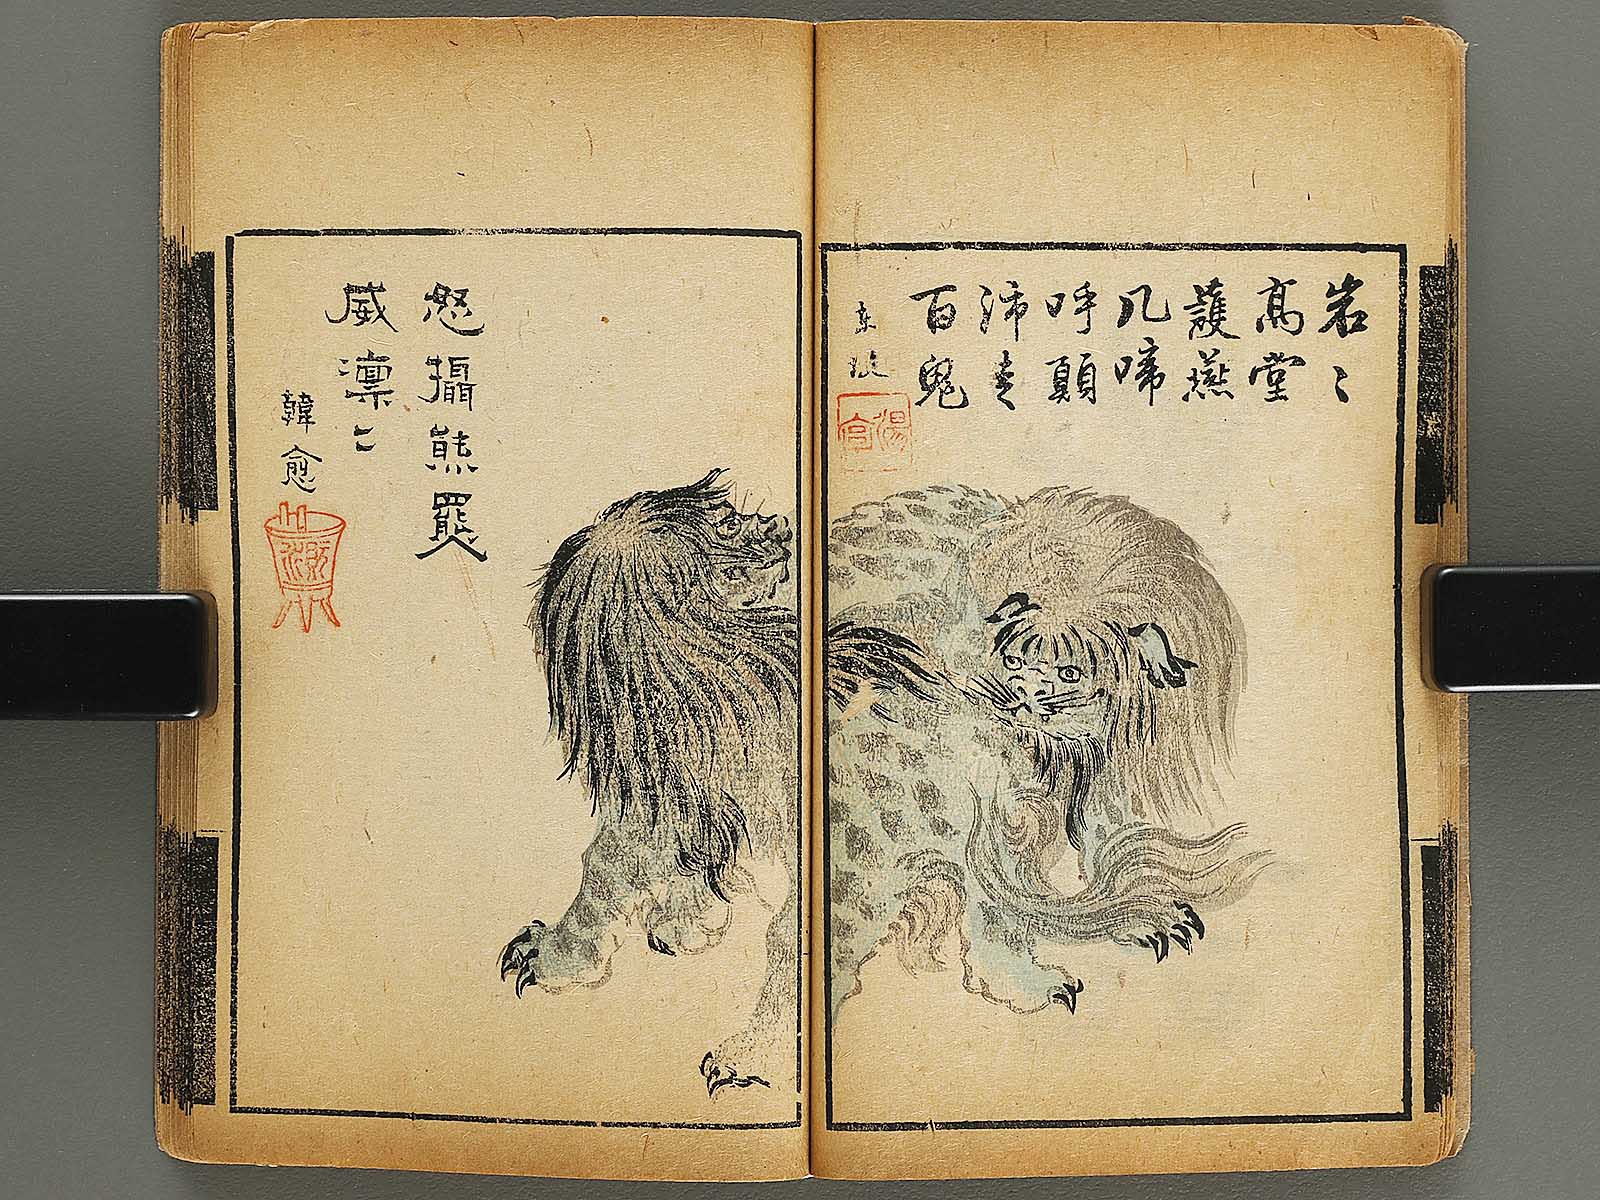 岩〻
高堂
護燕
几啼
呼顛
沛走
百鬼
東坡
怒攝熊羆
威凜〻
韓愈